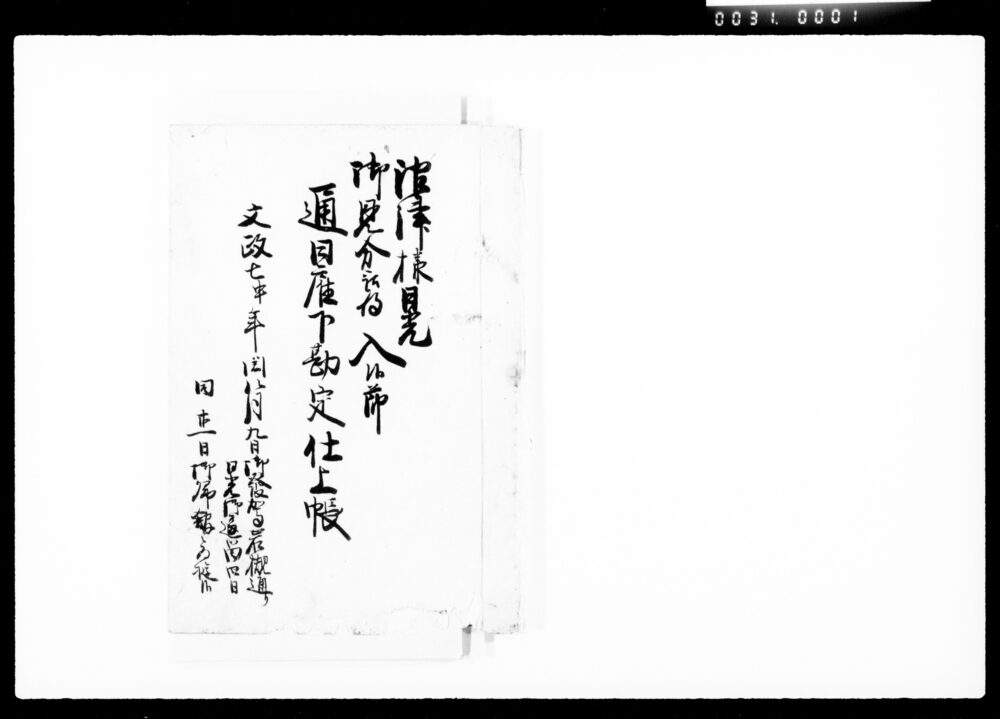 0031. 0001
沼津様日光
御見分被為入候節
通日雇下勘定仕上帳
文政七申年閏八月九日御発駕岩槻通り
日光御逗留四日
同廿一日御帰館被為遊候